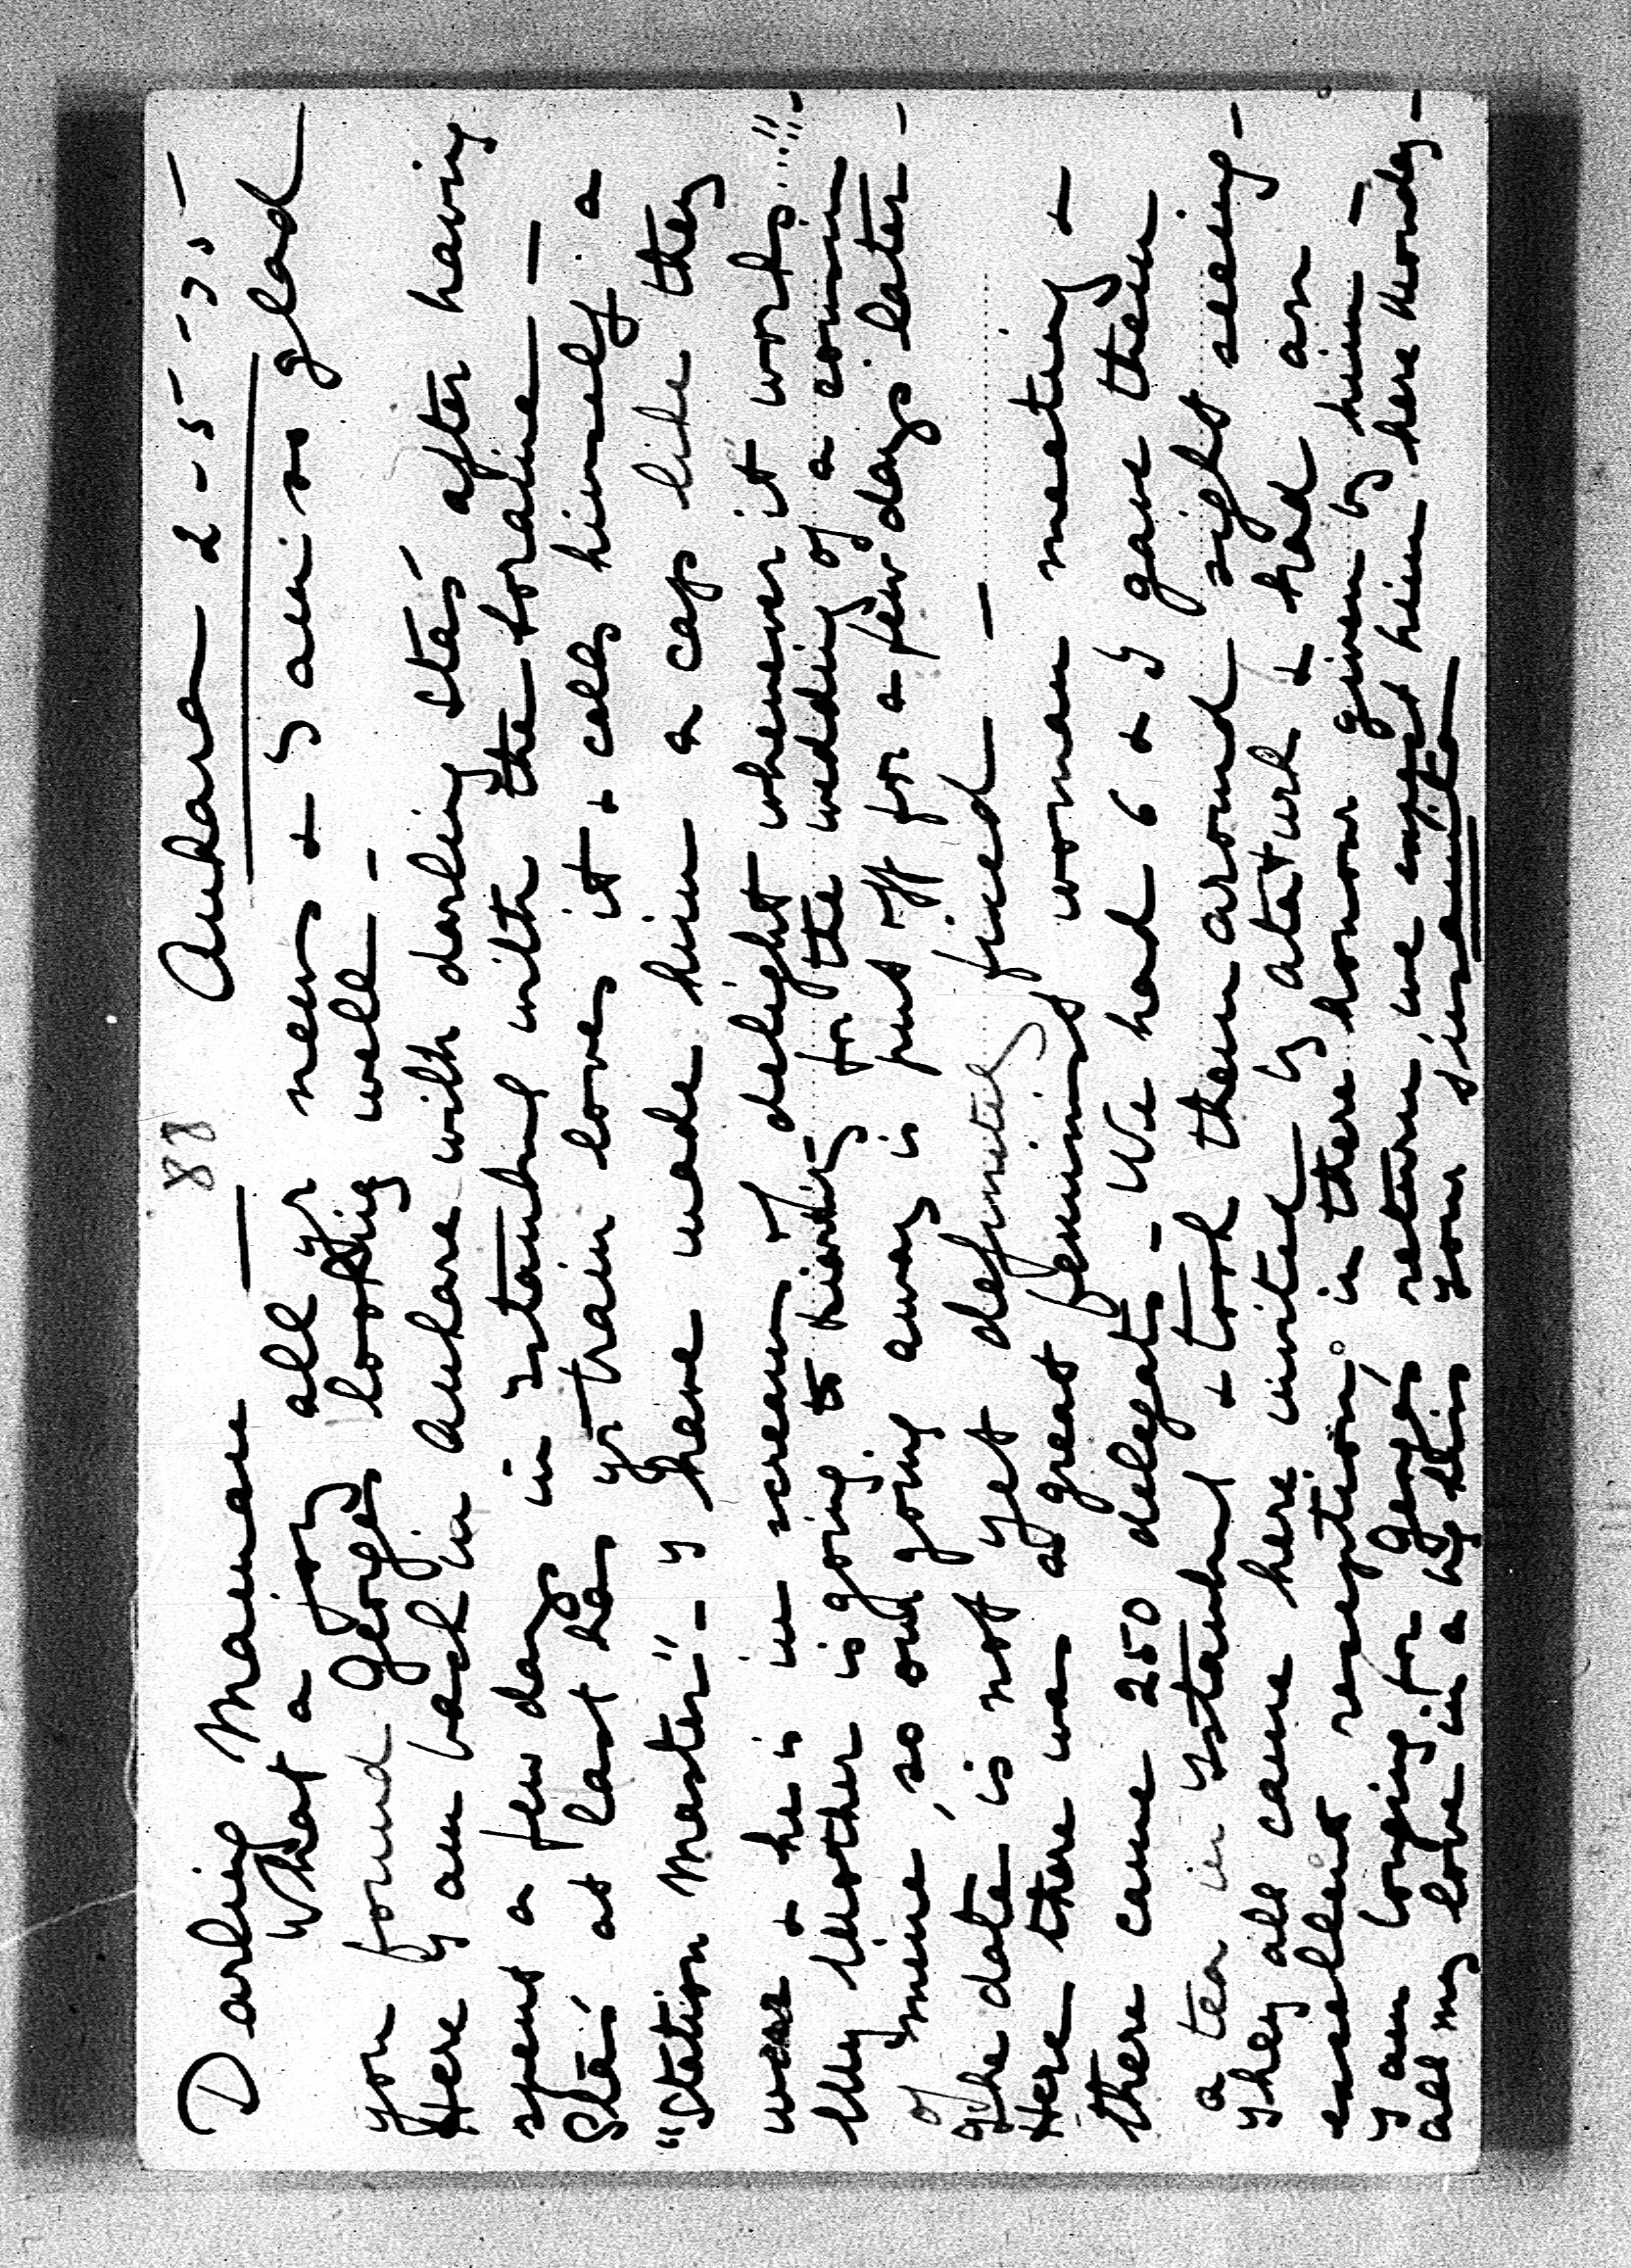 Darling Maman — 88 Ankara 2-5-35-
What a joy all yr news & I am so glad
you found Georges looking well -
Here I am back in Ankara with darling Stas after having
spent a few days in Istanbul with the Foraine —
Stas at last has yr train loves it & calls himself a
"Station Master" - I have made him a cap like they
wear & he is in scream of delight whenever it works...!!!-
My mother is going to for the wedding of a cousin
of mine, so our going away is put off for a few days later -
The date is not yet definitely fixed —
Here there was a great feminist woman meeting &
there came 250 delegats - We had 6 & I gave them
a tea in Istanbul & took them around sight seeing -
They all came here invited by Ataturk & had an
excellent reception in there honour given by him -
I am longing for Georges return we expect him here Monday -
all my love in a big kiss your